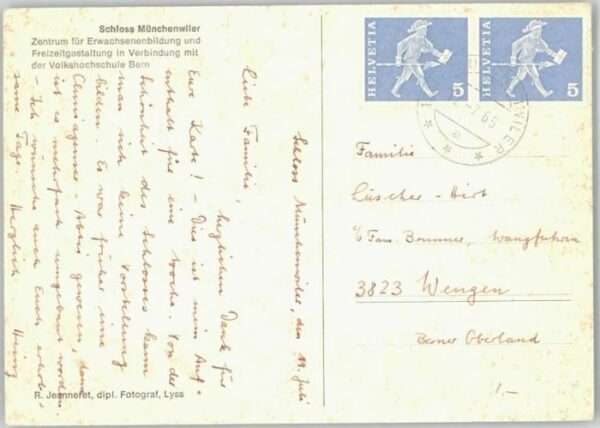 Schloss Münchenwiler
Zentrum für Erwachsenenbildung und
Freizeitgestaltung in Verbindung mit
der Volkshochschule Bern
Schloss Münchenwiler, den 19. Juli
Liebe Familie,
herzlichen Dank für
Eure Karte! – Dies ist mein Auf-
enthalt für eine Woche. Von der
Schönheit des Schlosses kann
man sich keine Vorstellung
bilden. Es war früher eine
Cluniazenser-Abtei gewesen, dann
ist es mehrfach umgebaut worden.
– Ich wünsche auch Euch erhol-
same Tage. Herzlich
R. Jeanneret, dipl. Fotograf, Lyss
HELVETIA 5
HELVETIA 5
WILER
65
Familie
Lüscher-Hirt
c/o Fam. Brunner,
3823 Wengen
Berner Oberland
1.–